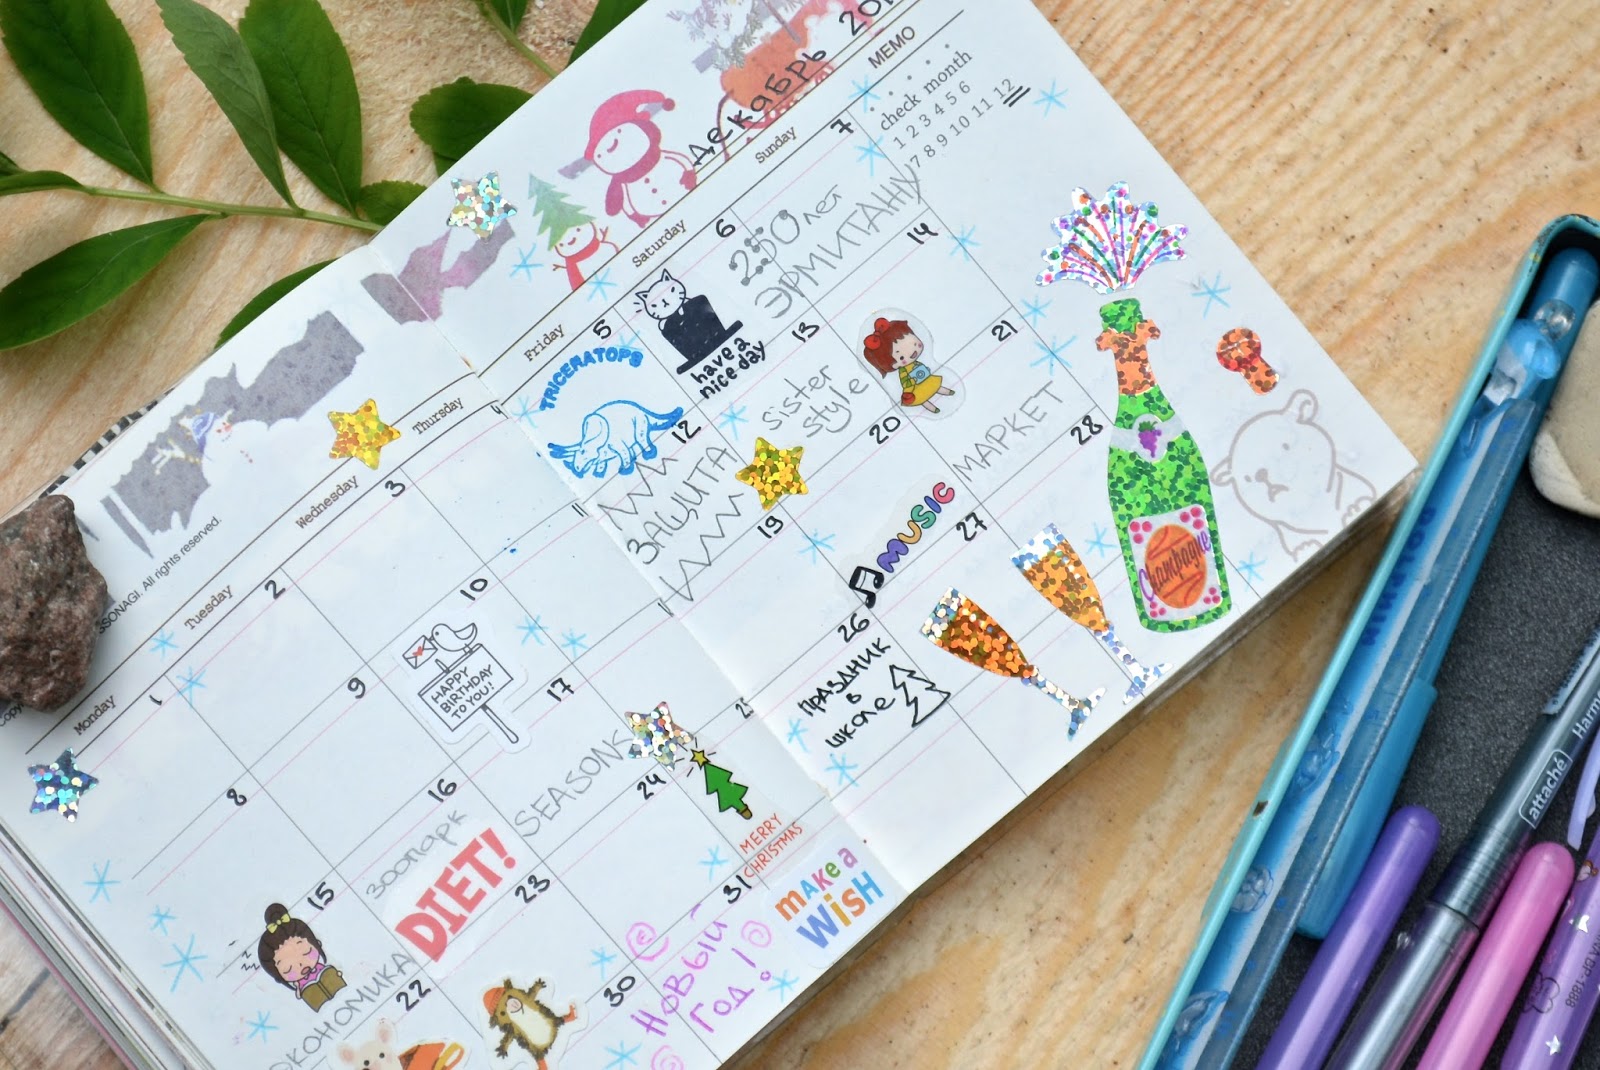 Декабрь
MEMO
check month
1 2 3 4 5 6
7 8 9 10 11 12
Monday
Tuesday
Wednesday
Thursday
Friday
Saturday
Sunday
SSONAGI. All rights reserved.
1
2
3
4
5
TRICERATOPS
6
have a
nice day
7
250 лет
ЭРМИТАЖУ
8
9
10
HAPPY
BIRTHDAY
TO YOU!
11
12
ЗАЩИТА
13
sister
style
14
15
ЭКОНОМИКА
16
зоопарк
DIET!
17
SEASONS
19
20
MUSIC
21
МАРКЕТ
22
23
24
25
MERRY
CHRISTMAS
26
ПРАЗДНИК
В
ШКОЛЕ
27
28
30
31
НОВЫЙ
ГОД!
make a
WiSH
Champagne
attaché